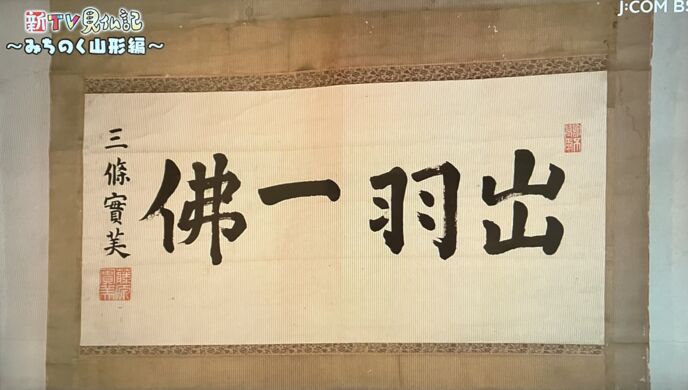 新TV見仏記
～みちのく山形編～
J:COM BS
出羽一佛
三條實美